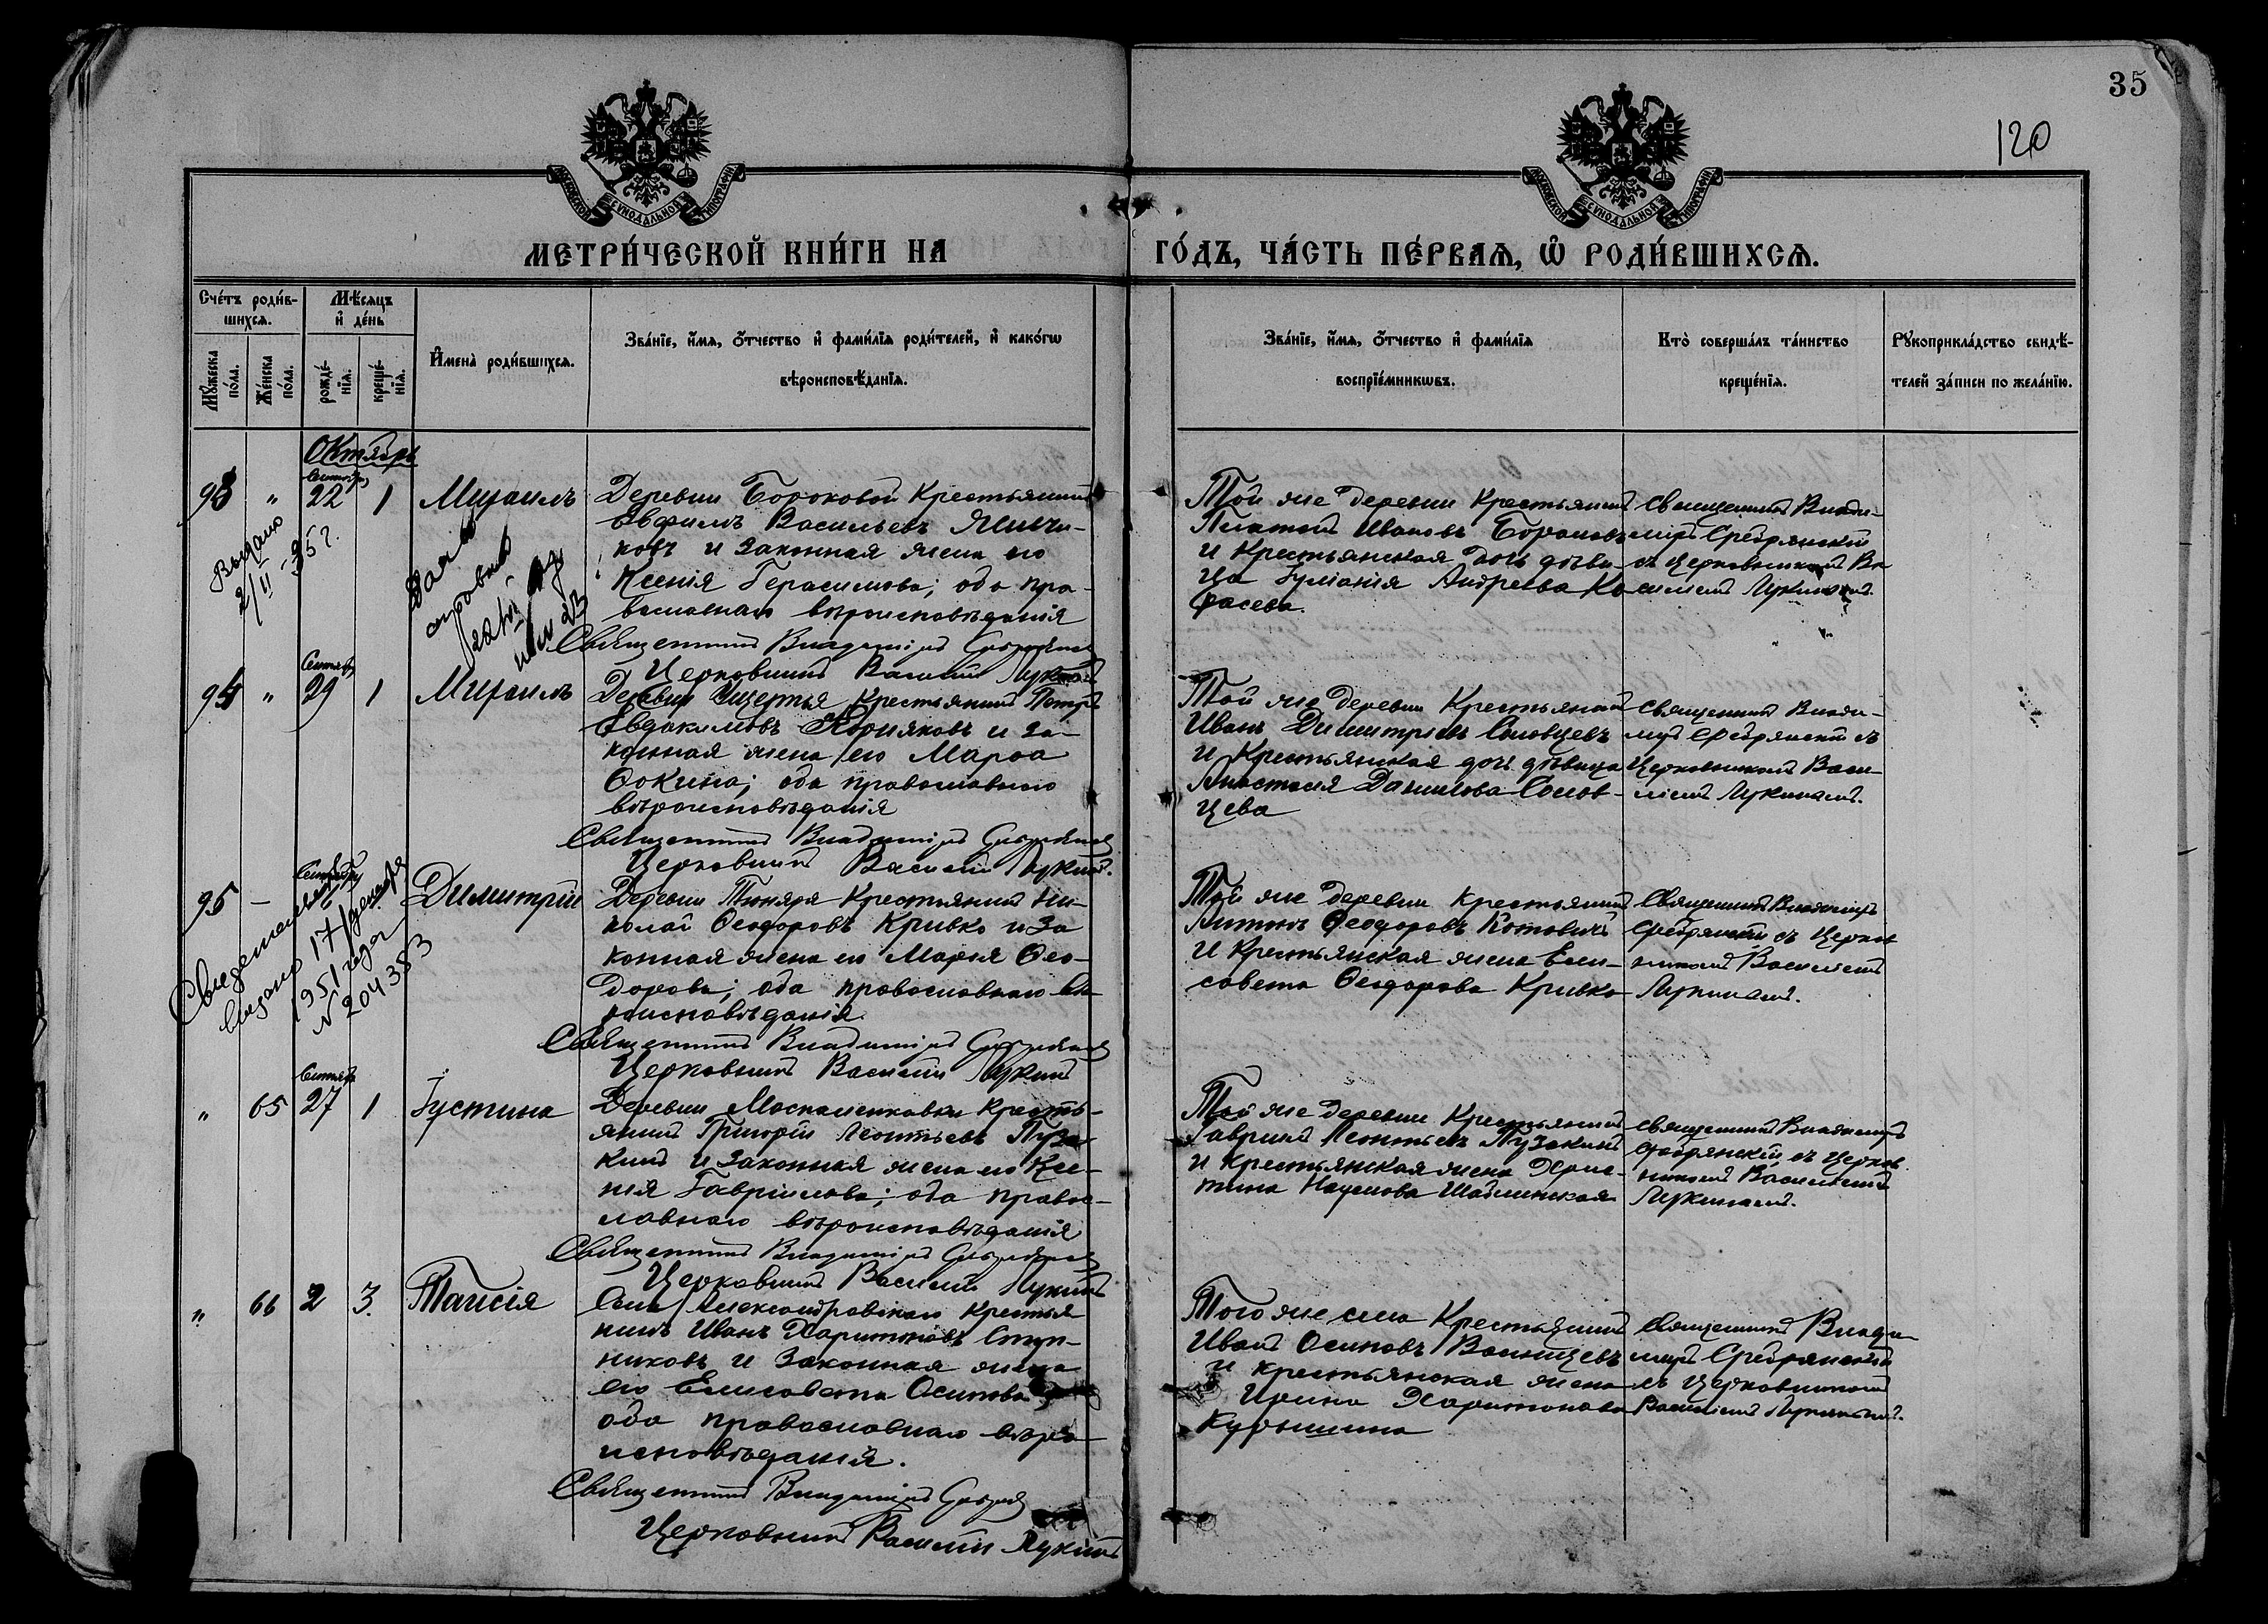 35
120
МОСКОВСКОЙ СУНОДАЛЬНОЙ ТИПОГРАФІИ
МОСКОВСКОЙ СУНОДАЛЬНОЙ ТИПОГРАФІИ
МЕТРИ́ЧЕСКОЙ КНИ́ГИ НА
ГО́ДЪ, ЧА́СТЬ ПЕ́РВАѦ, Ѡ҆ РОДИ́ВШИХСѦ.
Сче́тъ роди́в-
шихсѧ.
Мꙋ́жеска по́ла.
Же́нска по́ла.
Мѣ́сѧцъ
и҆ де́нь
рожде́-
нїѧ.
креще́-
нїѧ.
И҆мена̀ роди́вшихсѧ.
Зва́нїе, и҆́мѧ, ѻ҆́тчество и҆ фами́лїѧ роди́телей, и҆ како́гѡ
вѣроисповѣ́данїѧ.
Зва́нїе, и҆́мѧ, ѻ҆́тчество и҆ фами́лїѧ
воспрїе́мникѡвъ.
Кто̀ соверша́лъ та́инство
креще́нїѧ.
Рꙋкоприкла́дство свидѣ́-
телей за́писи по жела́нїю.
Октябрь
93 " Сентябрь 22 1 Михаилъ
Деревни Бороковой Крестьянинъ
Евфимъ Васильевъ
ковъ и законная жена его
Ксенія Герасимова; оба пра-
вославнаго вѣроисповѣданія
Священникъ Владиміръ Сребрянскій
Церковникъ Василій Лукинъ
Той же деревни Крестьянинъ
Платонъ Ивановъ
и Крестьянская дочь дѣви-
ца Андреева Ка
расева.
Священникъ Влади-
міръ Сребрянскій
съ Церковникомъ Ва
силіемъ Лукинымъ.
Выдано
2/II - 35 г.
94 " Сентябрь 29 1 Михаилъ
Деревни Крестьянинъ Петръ
Евдакимовъ и за-
конная жена его Марѳа
Ѳокина; оба православнаго
вѣроисповѣданія
Священникъ Владиміръ Сребрянскій
Церковникъ Василій Лукинъ.
Той же деревни Крестьянинъ
Иванъ Димитріевъ Соловцевъ
и Крестьянская дочь дѣвица
Анастасія Данилова Солов-
цева
Священникъ Влади-
міръ Сребрянскій съ
Церковникомъ Васи-
ліемъ Лукинымъ.
95 — Сентябрь Димитрій
Деревни Тюняря Крестьянинъ Ни-
колай Ѳеодоровъ Кривко и за
конная жена его Марія Ѳео-
дорова; оба православнаго вѣ
роисповѣданія.
Священникъ Владиміръ Сребрянскій
Церковникъ Василій Лукинъ
Той же деревни Крестьянинъ
Антонъ Ѳеодоровъ Котовичъ
и Крестьянская жена Ели-
савета Ѳеодорова Кривко
Священникъ Владиміръ
Сребрянскій съ Церков
никомъ Василіемъ
Лукинымъ.
Свидетельство
выдано 17/декабря
1951 года
N 204353
" 65 Сентябрь 27 1 Іустина
Деревни Москаленковки Кресть-
янинъ Григорій Леонтьевъ Пуза-
кинъ и законная жена его Ксе-
нія Гавріилова; оба право-
славнаго вѣроисповѣданія
Священникъ Владиміръ Сребрянскій
Церковникъ Василій Лукинъ
Той же деревни Крестьянинъ
Гавріилъ Леонтьевъ Пузакинъ
и Крестьянская жена Хрис-
тина Наумова
Священникъ Владиміръ
Сребрянскій съ Церков
никомъ Василіемъ
Лукинымъ.
" 66 2 3. Таисія
Села Александровскаго Крестья
нинъ Иванъ Харитоновъ Ступ-
никовъ и Законная жена
его Елисавета Осипова;
оба православнаго вѣро
исповѣданія.
Священникъ Владиміръ
Церковникъ Василій Лукинъ
Того же села Крестьянинъ
Иванъ Осиповъ
и крестьянская жена
Ирина Харитонова
Курышкина
Священникъ Влади-
міръ Сребрянскій
съ Церковникомъ
Василіемъ Лукинымъ.